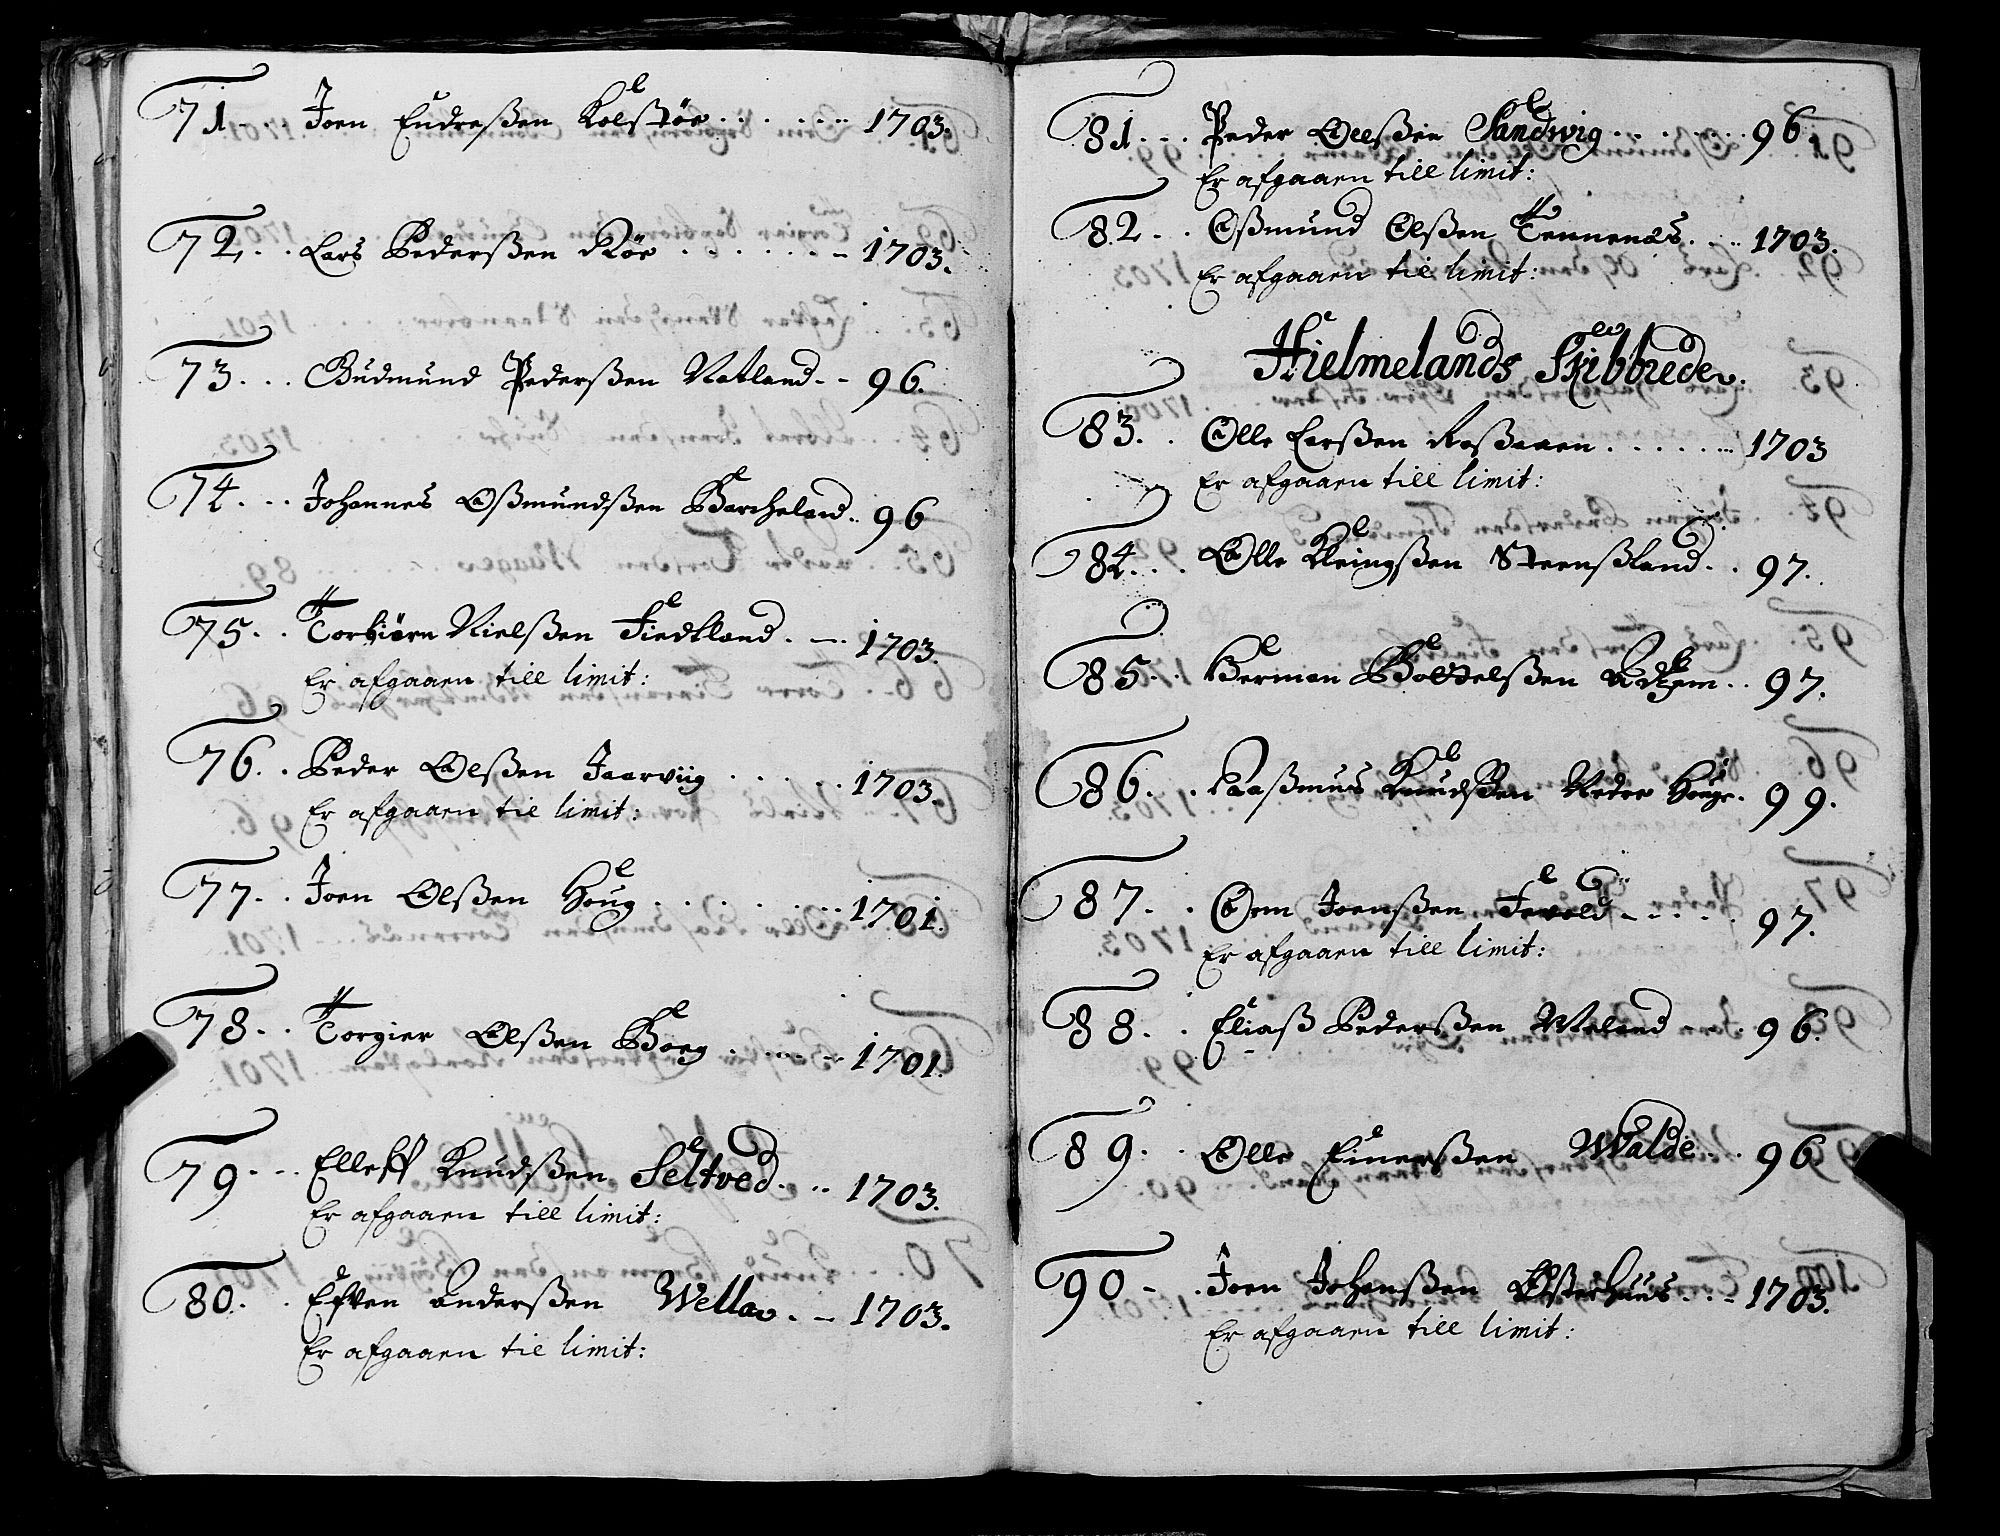 71 - . . Joen Endreßen Kolstöe . . . . . . . 1703.
72, . . Lars Pederßen Röe . . . . . . - 1703.
73 . . . Gudmund Pederßen Natland . - 96.
74 . . . Johannes Oßmundßen Barcheland . . 96
75 . . Torbiörn Nielßen Fiedtland . - . 1703.
Er afgaaen till limit:
76 . . Peder Olßen Jaarviig . . . . . 1703.
Er afgaaen til limit:
77 . . . Joen Olßen Houg . . . . . . . . 1701.
78 . . Torgier Olßen Borg . . . . - 1701.
79 . - . Elleff Knudßen Seltved . . . 1703.
Er afgaaen till limit:
80 . . . Efven Anderßen Wella . - 1703.
Er afgaaen til limit:
81 . - . Peder Olßen Sandwig . . . . . . . 96,
Er afgaaen till limit:
82 . . Oßmund Olßen Tennenæs . . . 1703.
Er afgaaen til limit:
Hielmelands Skibbrede.
83 . . Olle Larßen Roßaaen . . . . . . 1703
Er afgaaen till limit:
84 . . . Olle Elingßen Steenßland . . 97.
85 . . . Herman Bottelßen . . 97.
86 . . . Raaßmus Knudßen Nedre Houge . 99.
87 . . Orm Joenßen Tevold - . . . . 97.
Er afgaaen till limit:
88 . . Eliaß Pederßen Meland - . . 96.
89 . . Olle Einerßen Walde . . 96.
90 - . Joen Johanßen Østerhuus . . - 1703.
Er afgaaen till limit: